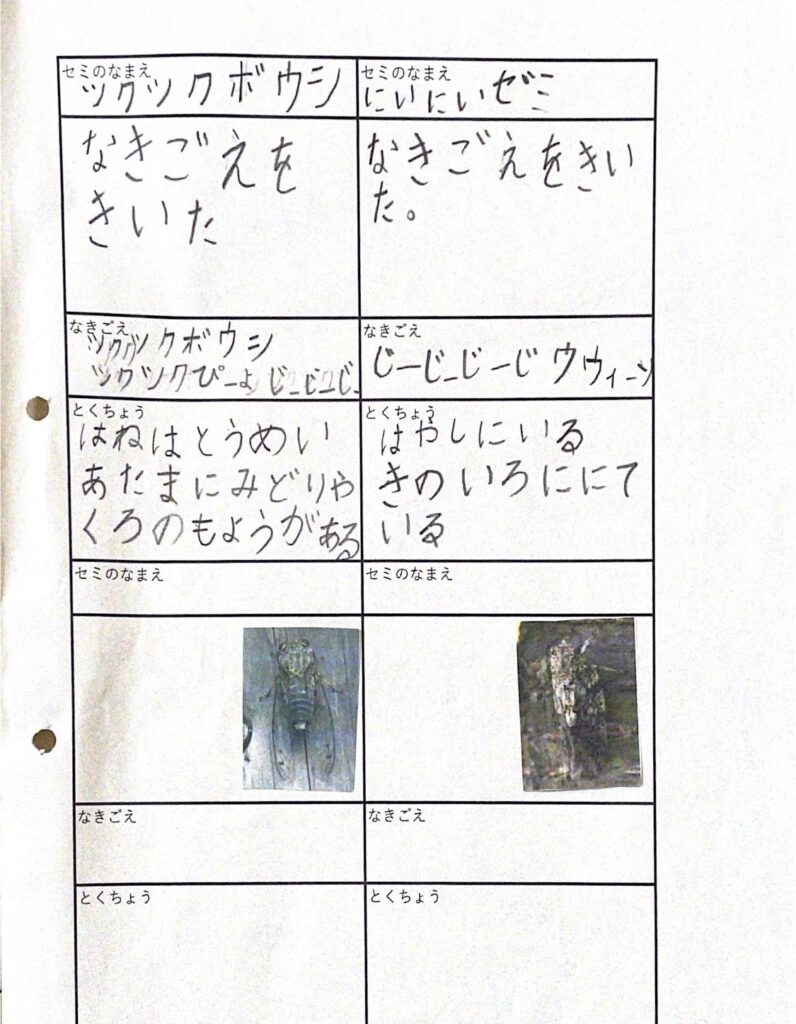 セミのなまえ
ツクツクボウシ
なきごえを
きいた
なきごえ
ツクツクボウシ
ツクツクぴーよ じーじーじー
とくちょう
はねはとうめい
あたまにみどりや
くろのもようがある
セミのなまえ
にいにいゼミ
なきごえをきい
た。
なきごえ
じーじーじーじ ウウィーン
とくちょう
はやしにいる
きのいろににて
いる
セミのなまえ
なきごえ
とくちょう
セミのなまえ
なきごえ
とくちょう